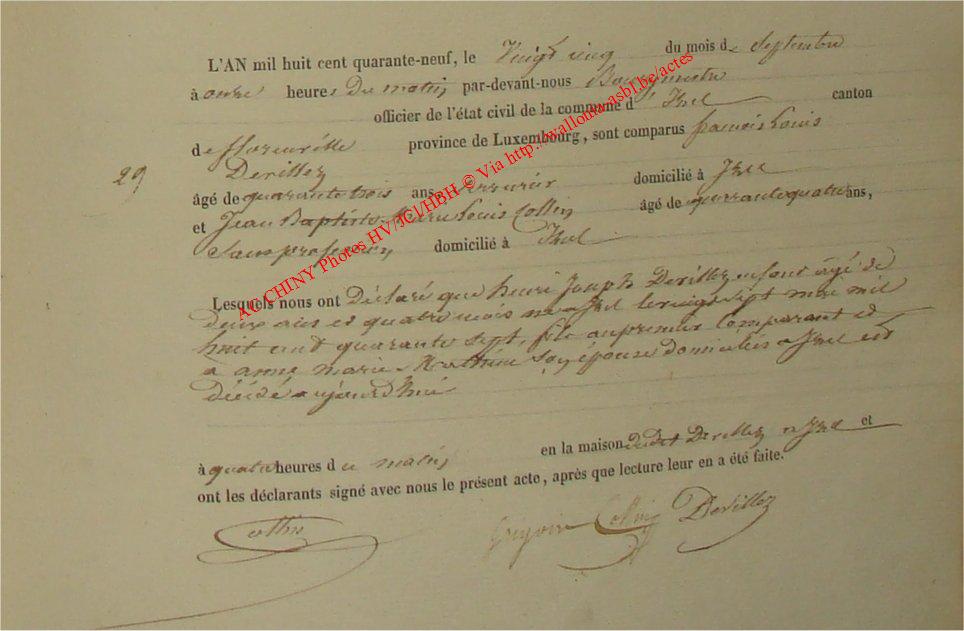 L'AN mil huit cent quarante-neuf, le Vingt cinq du mois de Septembre
à onze heures du matin par-devant-nous Bourgmestre
officier de l'état civil de la commune d' Izel canton
de florenville province de Luxembourg, sont comparus francois Louis
29
Devillez
âgé de quarante trois ans domicilié à Izel
et Jean Baptiste Louis Collin âgé de quarante quatre ans,
Sans profession domicilié à Izel
Lesquels nous ont déclaré que henri Joseph Devillez enfant âgé de
deux ans et quatre mois né a Izel le vingt sept mai mil
huit cent quarante sept, fils au premier Comparant et
à anne marie son épouse domiciliés a Izel est
décédé aujourd'hui
à quatre heures du matin en la maison dudit Devillez a Izel et
ont les déclarants signé avec nous le présent acte, après que lecture leur en a été faite.
Collin Gregoire Collin Devillez
AC CHINY Photos HV/JCl/HBH © Via http://wallonia.asbl.be/actes